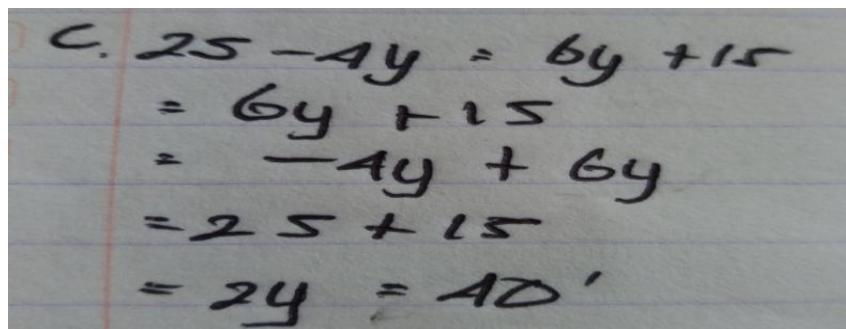 C. 25 - 4y = 6y + 15
= 6y + 15
= - 4y + 6y
= 25 + 15
= 2y = 40'